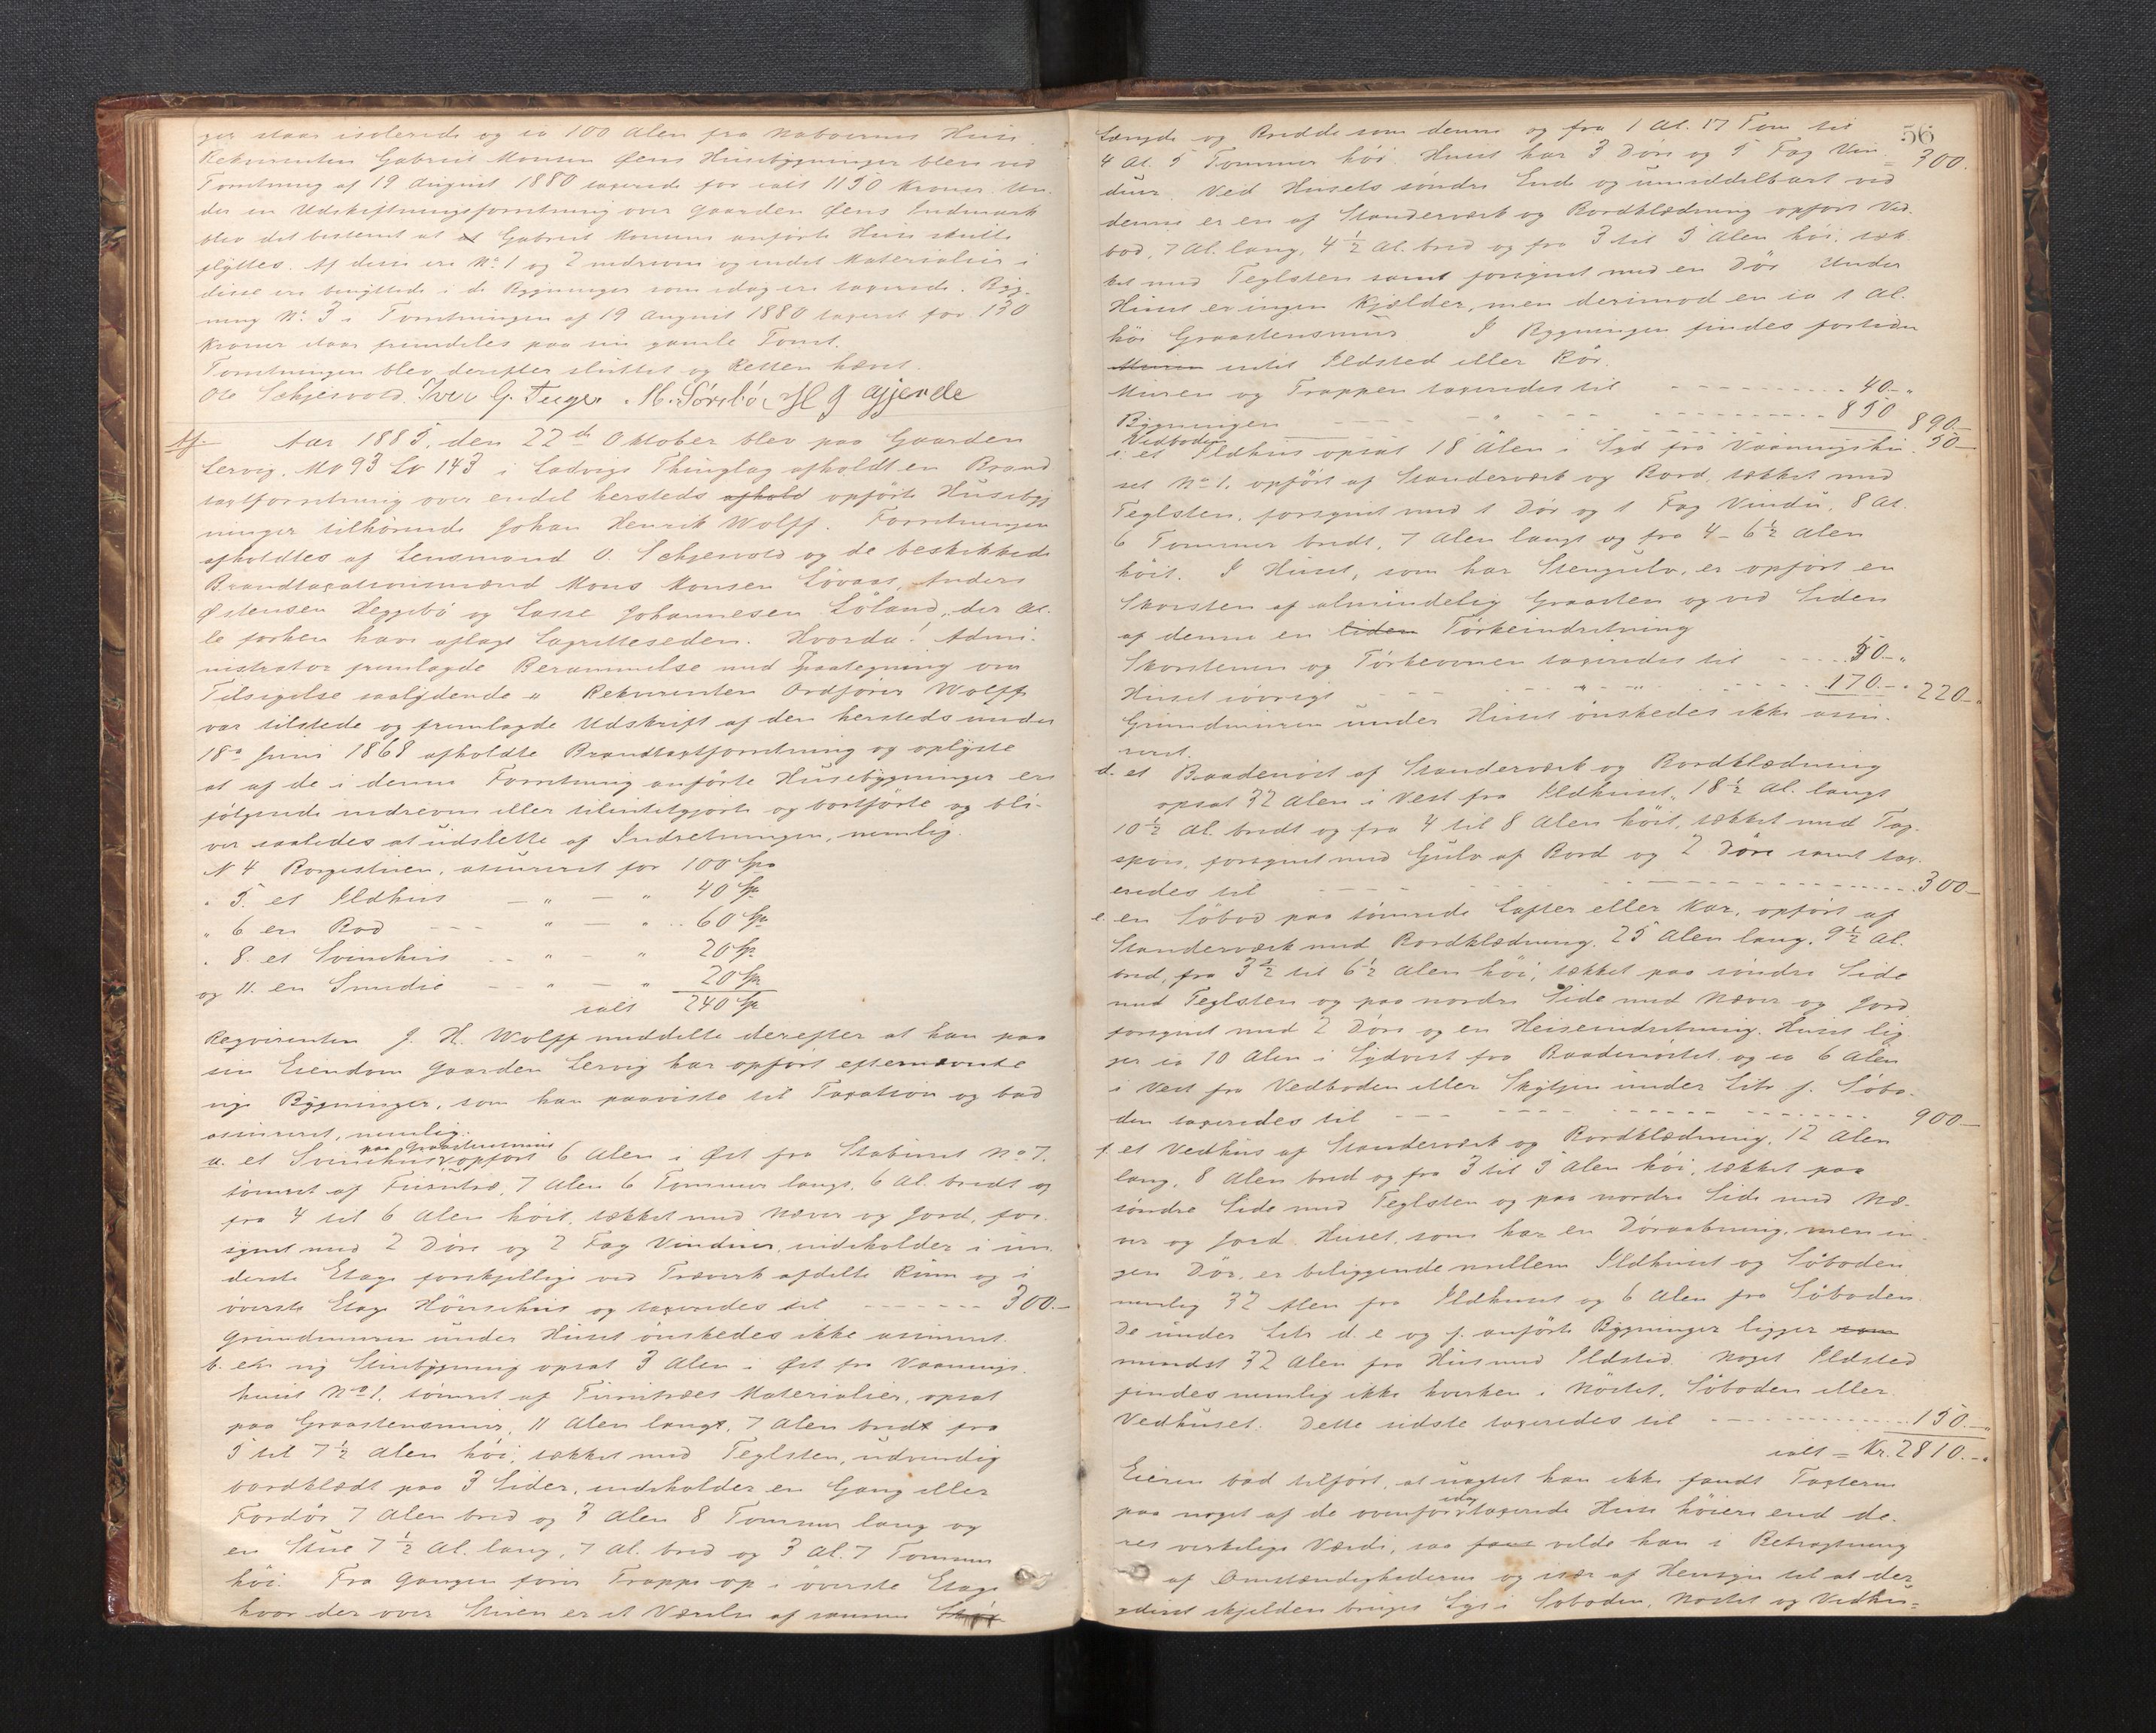 ger staar isolerede og ca 100 Alen fra Naboernes Huse.
Rekvirenten Gabriel Monsen Øens Husebygninger blev ved
Forretning af 19 August 1880 taxerede for ialt 1150 Kroner. Un-
der en Udskiftningsforretning over Gaarden Øens Indmark
blev det bestemt at Gabriel Monsens anførte Huse skulle
flyttes. Af disse ere No. 1 og 2 nedrevne og endel Materialier i
disse ere benyttede i de Bygninger som idag ere taxerede. Byg-
ning No. 3 i Forretningen af 19 August 1880 taxeret for 130
Kroner staar fremdeles paa sin gamle Tomt.
Forretningen blev derefter sluttet og Retten hævet.
Ole Schjesvold. Iver G. Tuge. M. Sörebö H G Gjerde
Aar 1885, den 22de Oktober blev paa Gaarden
Lervig, M№ 93 L№ 143 i Ladvigs Thinglag afholdt en Brand
taxtforretning over endel hersteds afhold opførte Husebyg
ninger tilhörende Johan Henrik Wolff. Forretningen
afholdtes af Lensmand O. Schjesvold og de beskikkede
Brandtaxationsmænd Mons Monsen Lövaas, Anders
Østensen Heggebö og Lasse Johannesen Löland, der al-
le forhen have aflagt Lagretteseden. Hvorda! Admi-
nistrator fremlagde Berammelse med Paategning om
Tilsigelse saalydende " Rekvirenten Ordfører Wolff
var tilstede og fremlagde Udskrift af den hersteds under
18de Juni 1868 afholdte Brandtaxtforretning og oplyste
at af de i denne Forretning anførte Husebygninger ere
følgende nedrevne eller tilintetgjorte og bortførte og bli-
ver saaledes at udslette af Indretningen, nemlig.
N 4 Borgestuen, assureret for 100 Sp
" 5. et Ildhus — " — " 40 Sp
" 6 en Bod — " — " 60 Sp
" 8. et Svinehus — " — " 20 Sp
og 11. en Smedie — " — " 20 Sp
ialt 240 Sp
Reqvirenten J. H. Wolff meddelte derefter at han paa
sin Eiendom Gaarden Lervig har opført efternævnte
nye Bygninger, som han paaviste til Taxation og bad
assureret, nemlig:
paa Graastensmur
a. et Svinehus opført 6 Alen i Øst fra Staburet No 7.
tömret af Furutræ, 7 Alen 6 Tommer langt, 6 Al. bredt og
fra 4 til 6 Alen höit, tækket med Næver og Jord, for-
synet med 2 Döre og 2 Fag Vinduer, indeholder i un-
derste Etage forskjellige ved Træverk afdelte Rum og i
överste Etage Hönsehus og taxeredes til — 300.—
Grundmuren under Huset önskedes ikke assureret.
b. en ny Stuebygning opsat 3 Alen i Øst fra Vaanings-
huset No 1. tömret af Furutræes Materialier, opsat
paa Graastensmur, 11 Alen langt, 7 Alen bredt fra
5 til 7 ½ Alen höi, tækket med Teglsten, udvendig
bordklædt paa 3 Sider, indeholder en Gang eller
Fordör 7 Alen bred og 3 Alen 8 Tommer lang og
en Stue 7 ½ Al. lang, 7 Al. bred og 3 Al. 7 Tommer
höi. Fra Gangen fører Trappe op i överste Etage
hvor der over Stuen er et Værelse af samme
56
Længde og Bredde som denne og fra 1 Al. 17 Tom til
4 Al. 5 Tommer höi. Huset har 3 Döre og 5 Fag Vin- 300.
duer. Ved Husets söndre Ende og umiddelbart ved
denne er en af Standerværk og Bordklædning opført Ved-
bod, 7 Al. lang, 4 ½ Al. bred og fra 3 til 5 Alen höi, tæk-
ket med Teglsten samt forsynet med en Dör. Under
Huset er ingen Kjælder, men derimod en ca 1 Al.
höi Graastensmur I Bygningen findes fortiden
Muren intet Ildsted eller Rör.
Muren og Trappen taxeredes til — 40.— "
Bygningen — " — 850 890.—
Vedboden 50—
c. et Ildhus opsat 18 Alen i Syd fra Vaaningshu-
set No 1, opført af Standerværk og Bord, tækket med
Teglsten, forsynet med 1 Dör og 1 Fag Vindu, 8 Al.
6 Tommer bredt, 7 Alen langt og fra 4 – 6 ½ Alen
höit. I Huset, som har Stengulv, er opfört en
Skorsten af almindelig Graasten og ved Siden
af denne en liden Törkeindretning
Skorstenen og Törkeovnen taxeredes til — 50.— "
Huset iövrigt — " — " — 170.— 220—
Grundmuren under Huset önskedes ikke assu-
reret.
d. et Baadenöst af Standerværk og Bordklædning
opsat 32 Alen i Vest fra Ildhuset, 18 ½ Al. langt
10 ½ Al. bredt og fra 4 til 8 Alen höit, tækket med Tag-
spon, forsynet med Gulv af Bord og 2 Döre samt tax-
eredes til — 300—
e. en Söbod paa tömrede Lafter eller Kar, opført af
Standerværk med Bordklædning, 25 Alen lang, 9 ½ Al.
bred, fra 3 ½ til 6 ½ Alen höi, tækket paa söndre Side
med Teglsten og paa nordre Side med Næver og Jord
forsynet med 2 Döre og en Heiseindretning. Huset lig
ger ca 10 Alen i Sydvest fra Baadenöstet og ca 6 Alen
i Vest fra Vedboden eller Skytjen under Litr f. Söbo-
den taxeredes til — 900—
f. et Vedhus af Standerværk og Bordklædning, 12 Alen
lang, 8 Alen bred og fra 3 til 5 Alen höi, tækket paa
söndre Side med Teglsten og paa nordre Side med Næ-
ver og Jord. Huset, som har en Döraabning, men in-
gen Dör, er beliggende mellem Ildhuset og Söboden
nemlig 32 Alen fra Ildhuset og 6 Alen fra Söboden.
De under Litr d. e og f. anførte Bygninger ligger som
mindst 32 Alen fra Hus med Ildsted. Noget Ildsted
findes nemlig ikke hverken i Nöstet, Söboden eller
Vedhuset. Dette sidste taxeredes til — 150.—
ialt = Kr. 2810.—
Eieren bad tilført, at uagtet han ikke fandt Taxterne
paa noget af de ovenfor idag taxerede Huse höiere end de-
res virkelige Værdi, saa vilde han i Betragtning
af Omstændighederne og især af Hensyn til at der
yderst skjelden bruges Lys i Søboden, Nöstet og Vedhu=